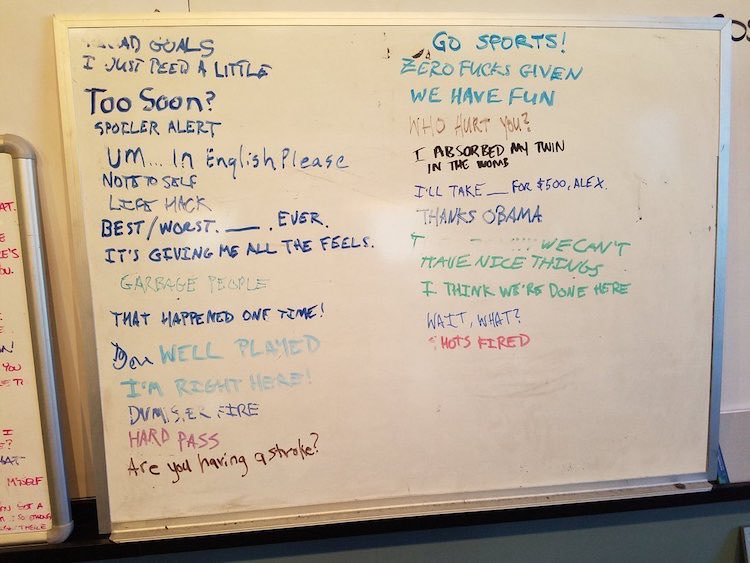 AD GOALS
I JUST PEED A LITTLE
Too Soon?
SPOILER ALERT
UM... In English Please
NOTE TO SELF
LIFE HACK
BEST/WORST. ___. EVER.
IT'S GIVING ME ALL THE FEELS.
GARBAGE PEOPLE
THAT HAPPENED ONE TIME!
WELL PLAYED
I'M RIGHT HERE!
DUMSER FIRE
HARD PASS
Are you having a stroke?
GO SPORTS!
ZERO FUCKS GIVEN
WE HAVE FUN
WHO HURT YOU?
I ABSORBED MY TWIN
IN THE WOMB
I'LL TAKE ___ FOR $500, ALEX.
THANKS OBAMA
T WE CAN'T
HAVE NICE THINGS
I THINK WE'RE DONE HERE
WAIT, WHAT?
SHOTS FIRED
AT.
YOU
I
MYSELF
GOT A